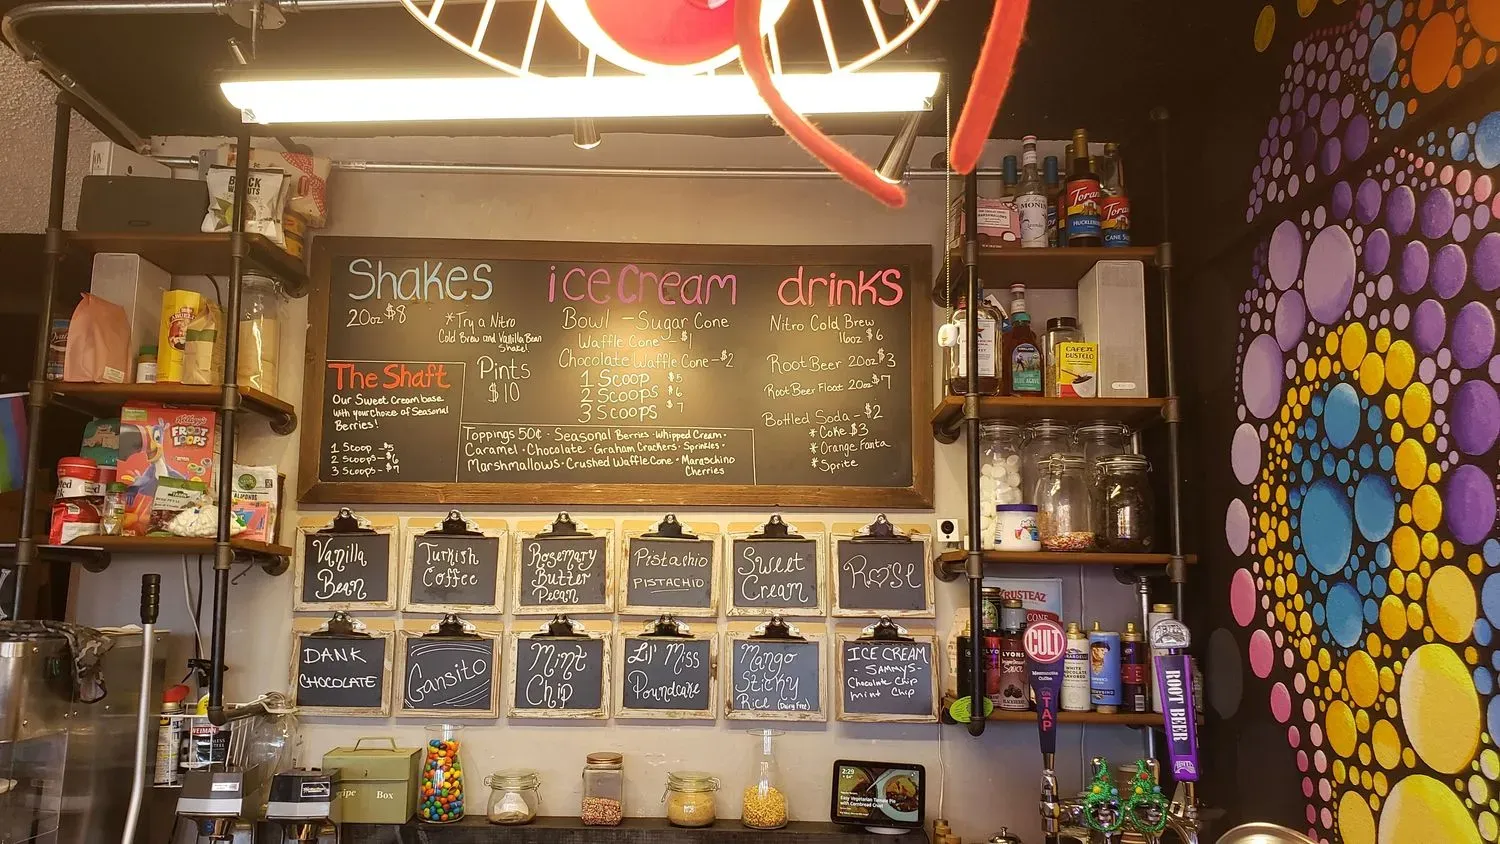 Shakes
20oz $8
*Try a Nitro
Cold Brew and Vanilla Bean
Shake!
Pints
$10
The Shaft
Our Sweet Cream base
with your choice of Seasonal
Berries!
1 Scoop - $5
2 Scoops - $6
3 Scoops - $7
ice cream
Bowl - Sugar Cone
Waffle Cone - $1
Chocolate Waffle Cone - $2
1 Scoop $5
2 Scoops $6
3 Scoops $7
Toppings 50¢ · Seasonal Berries · Whipped Cream ·
Caramel · Chocolate · Graham Crackers · Sprinkles ·
Marshmallows · Crushed Waffle Cone · Maraschino
Cherries
drinks
Nitro Cold Brew
16oz $6
Root Beer 20oz $3
Root Beer Float 20oz $7
Bottled Soda - $2
* Coke $3
* Orange Fanta
* Sprite
Vanilla
Bean
Turkish
Coffee
Rosemary
Butter
Pecan
Pistachio
PISTACHIO
Sweet
Cream
Rose
DANK
CHOCOLATE
Gansito
Mint
Chip
Lil' Miss
Poundcake
Mango
Sticky
Rice (Dairy Free)
ICE CREAM
- SAMMYS -
Chocolate Chip
Mint Chip
MONIN
Torani
HUCKLEBERRY
Torani
CANE SU
CAFE
BUSTELO
Kellogg's
FROOT
LOOPS
ALMONDS
KRUSTEAZ
CONE
CULT
ON
TAP
LYONS
WHITE
CHOCOLATE
FLAVORED
ROOT BEER
WEIMAN
Recipe Box
2:29
Easy Vegetarian Tamale Pie
with Cornbread Crust